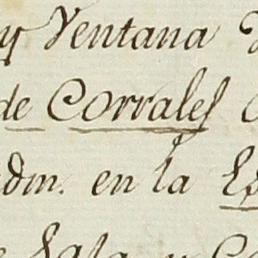 y Ventana
de Corrales
en la
Sala y